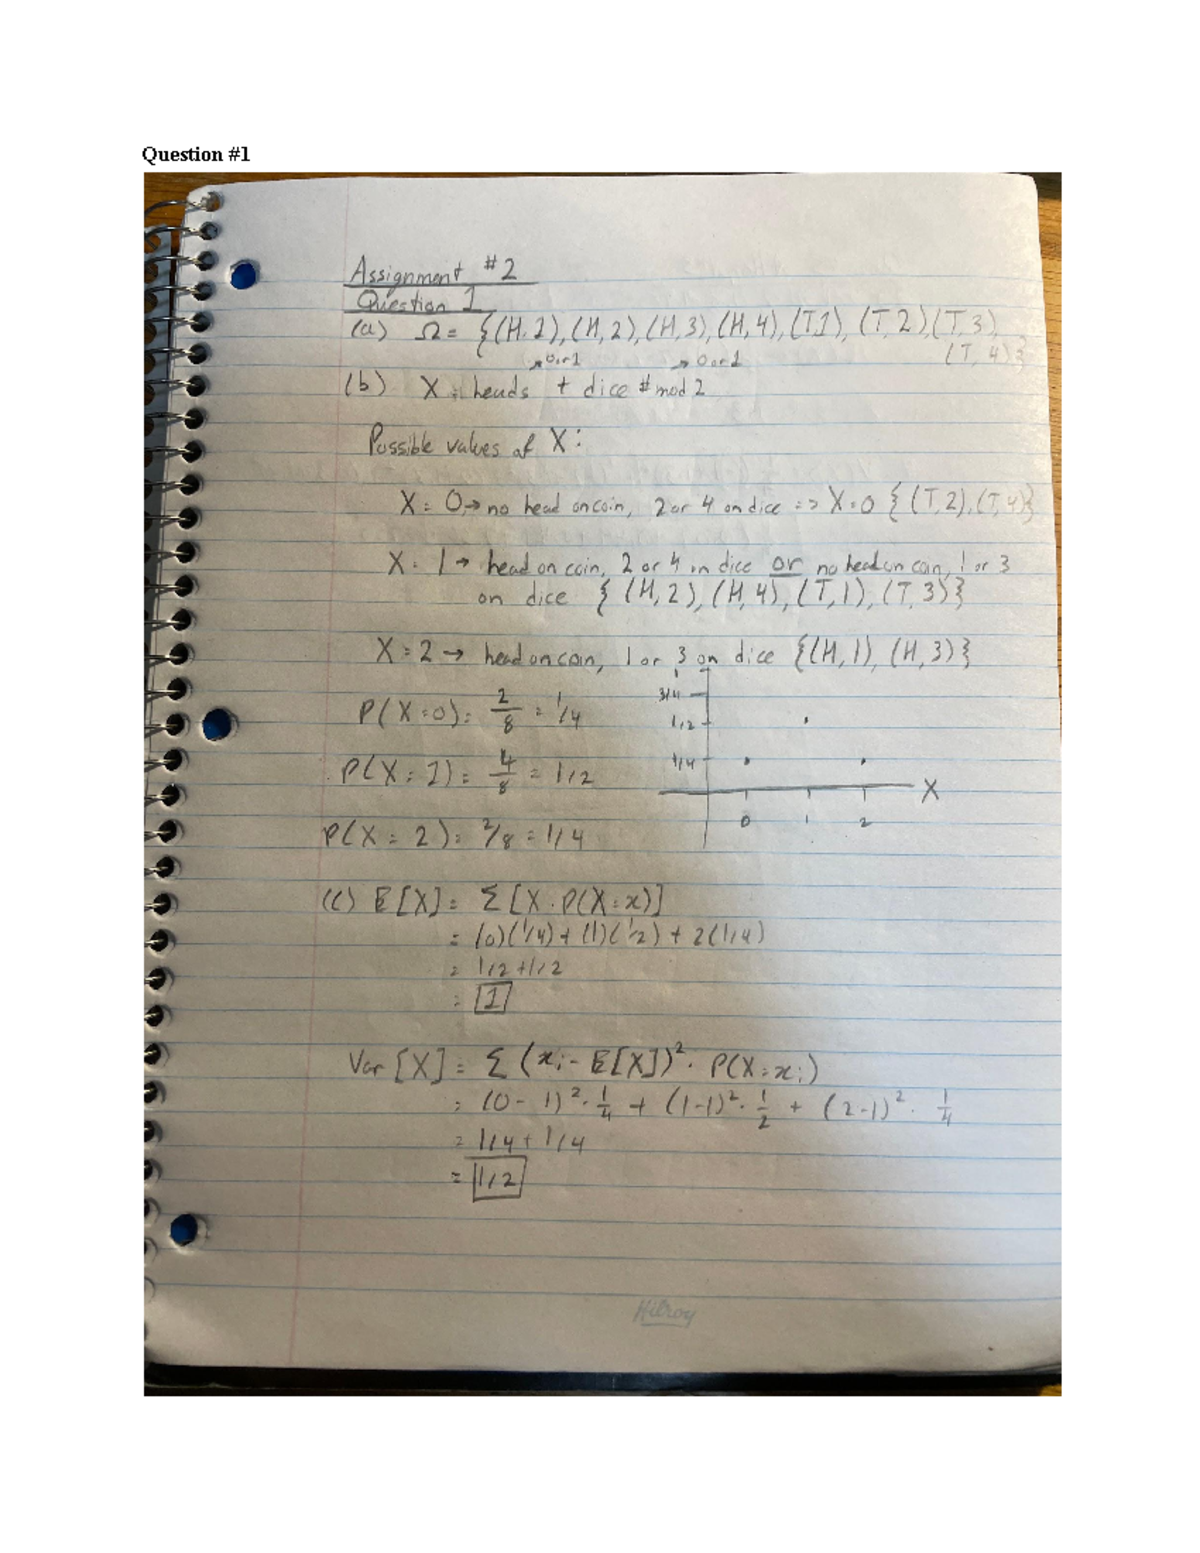 Question #1
Assignment #2
Question 1
(a) Ω = {(H,1), (H,2), (H,3), (H,4), (T,1), (T,2) (T,3)
(T,4)}
→ 0 or 1 → 0 or 1
(b) X = heads + dice # mod 2
Possible values of X:
X = 0 → no head on coin, 2 or 4 on dice => X=0 {(T,2),(T,4)}
X = 1 → head on coin, 2 or 4 on dice or no head on coin, 1 or 3
on dice {(H,2), (H,4), (T,1), (T,3)}
X = 2 → head on coin, 1 or 3 on dice {(H,1), (H,3)}
P(X=0) = 2/8 = 1/4
P(X=1) = 4/8 = 1/2
P(X=2) = 2/8 = 1/4
3/4
1/2
1/4
X
0 1 2
(c) E[X] = Σ[X·P(X=x)]
= (0)(1/4) + (1)(1/2) + 2(1/4)
= 1/2 + 1/2
= 1
Var[X] = Σ(xi - E[X])²· P(X=xi)
= (0-1)²·1/4 + (1-1)²·1/2 + (2-1)²·1/4
= 1/4 + 1/4
= 1/2
Hilroy